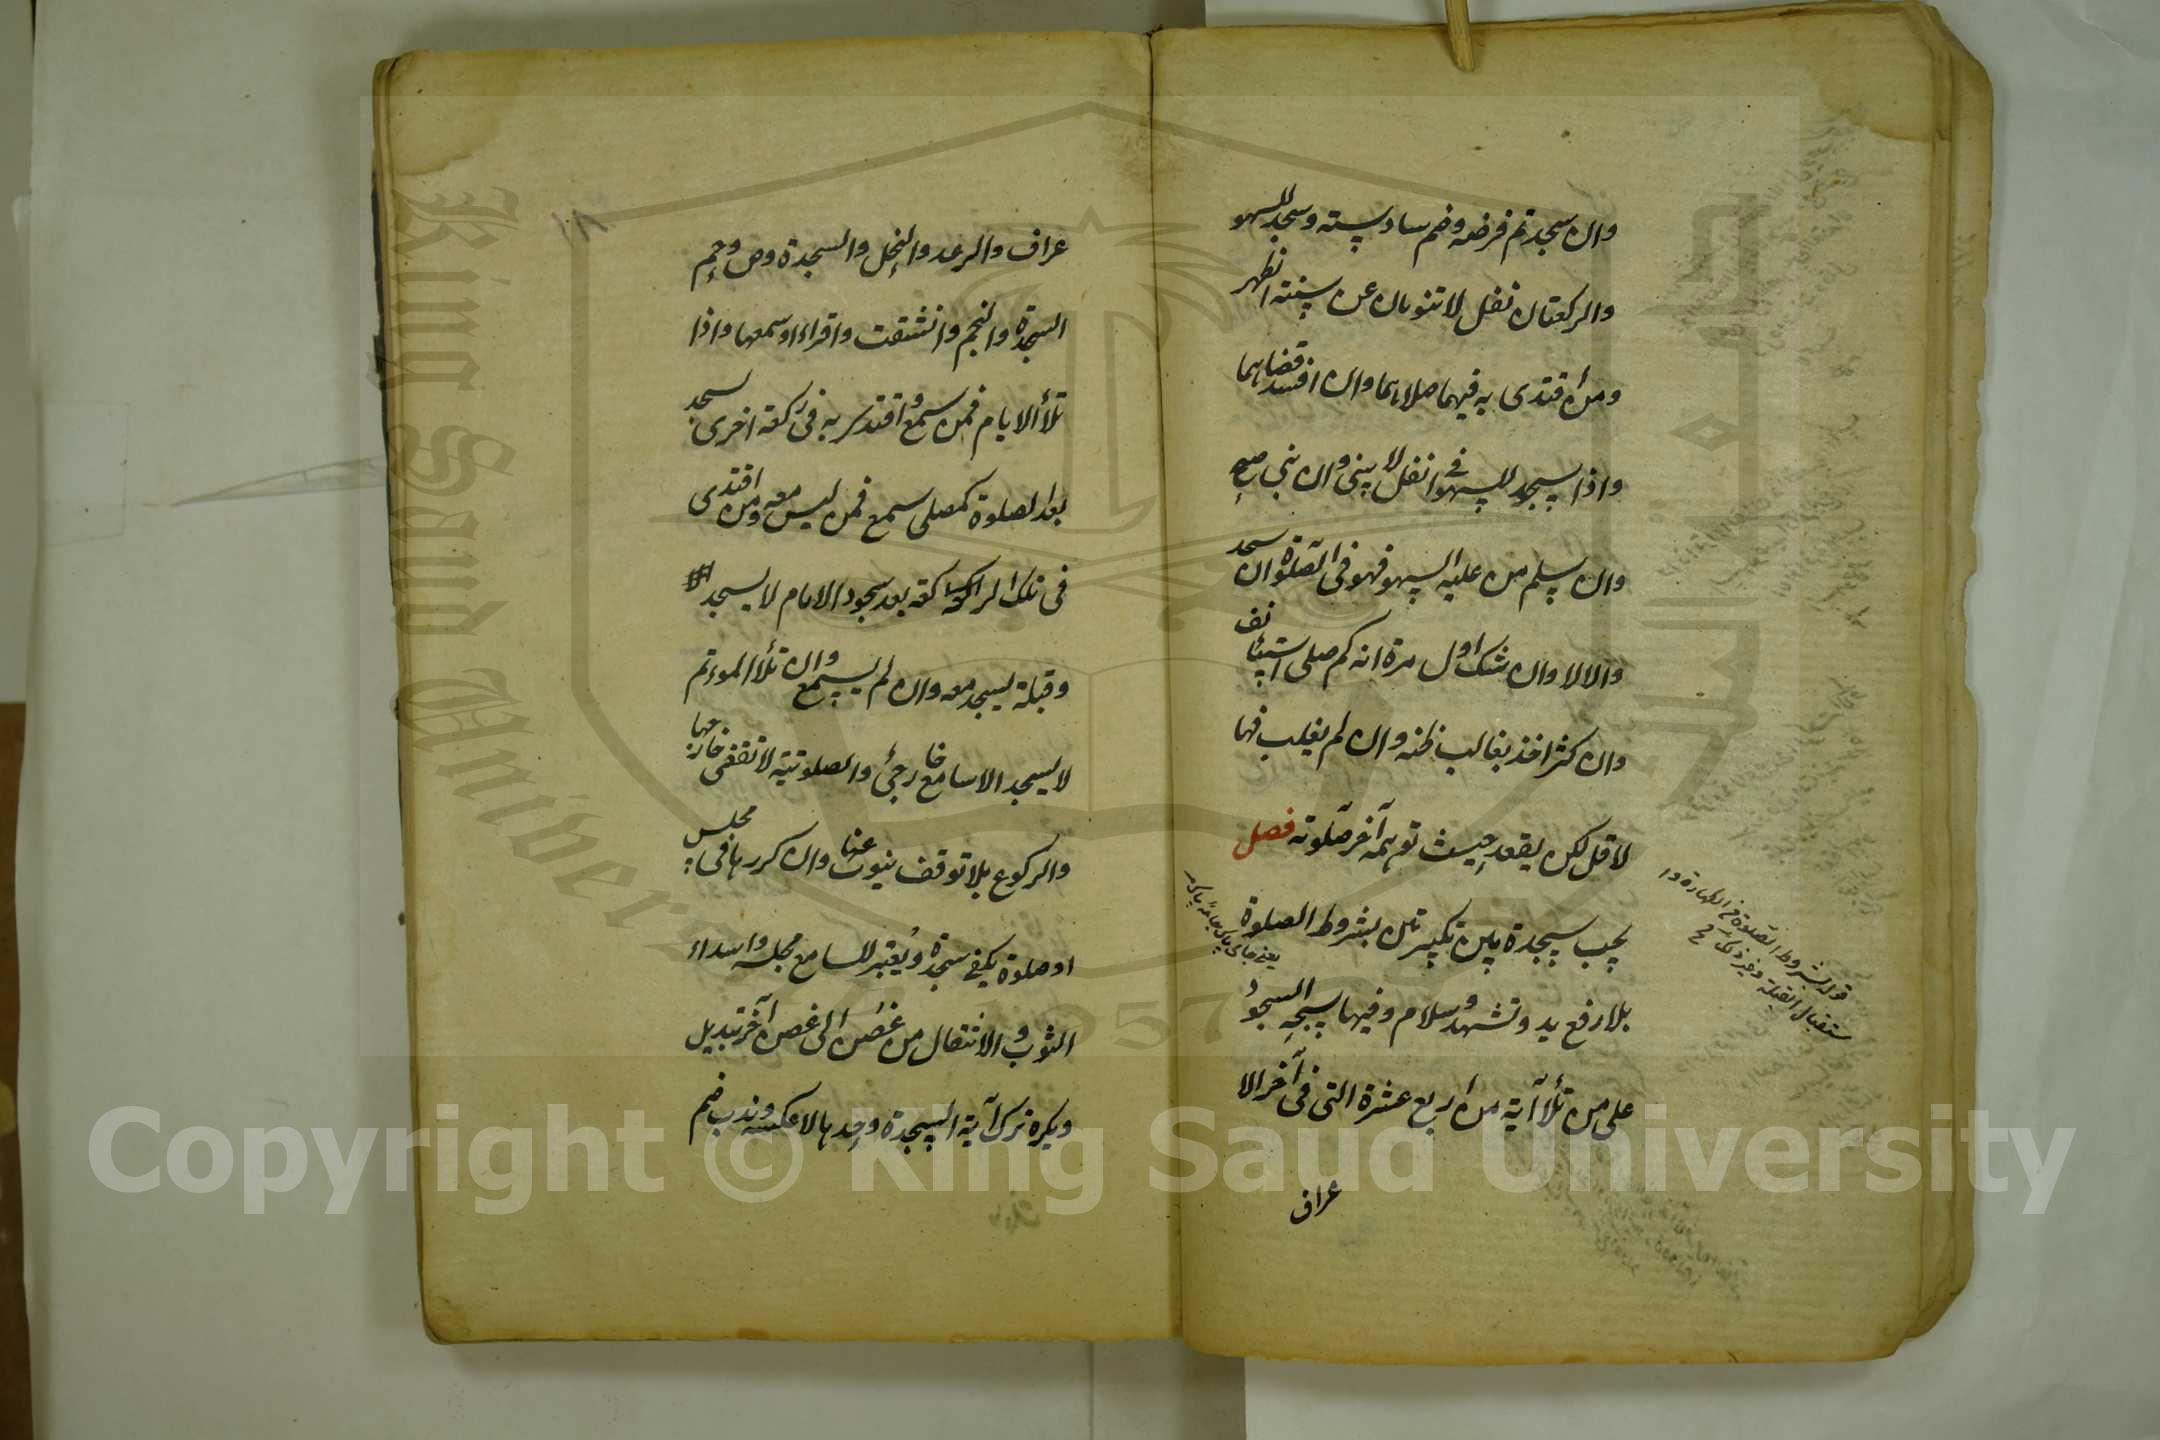 وان سجد تم فرضه وضم سادسته وسجد للسهو
والركعتان نفل لا تنوبان عن سنته الظهر
ومن اقتدى به فيهما صلاهما وان افسد قضاهما
واذا سجد للسهو فى انفل لا يبنى وان بنى صح
وان سلم من عليه السهو فهو فى الصلوة ان سجد
والا لا وان شك اول مرة انه كم صلى استيئانف
وان كثر اخذ بغالب ظنه وان لم يغلب فبما
لاقل لكن يقعد حيث توهمه آخر صلوته فصل
يجب سجدة بين تكبيرتين بشروط الصلوة
بلا رفع يد وتشهد وسلام وفيها سبحة السجود
على من تلا آية من اربع عشرة التى فى آخر الا
عراف
قوله بشروط الصلوة من الطهارة وا
ستقبال القبلة وغير ذلك
عراف والرعد والنحل والسجدة وص وحم
السجدة والنجم وانشقت واقراء او سمعها واذا
تلا الامام فمن سمع واقتدى به فى ركعة اخرى سجد
بعد الصلوة كمصلى سمع فمن ليس معه ومن اقتدى
فى تلك الركعة بعد سجود الامام لا يسجد
وقبله يسجد معه وان لم يسمع وان تلا الموءتم
لا يسجد الا سامع خارجى والصلوتية لا تقضى خارجها
والركوع بلا توقف ينوب عنها وان كررها فى مجلس
او صلوة يكفى سجدة ويعتبر للسامع مجلسه واسداء
الثوب والانتقال من غصن الى غصن آخر تبديل
ويكره ترك آية السجدة وحدها لا عكسه وندب ضم
١٨
King Saud University
1957
Copyright © King Saud University